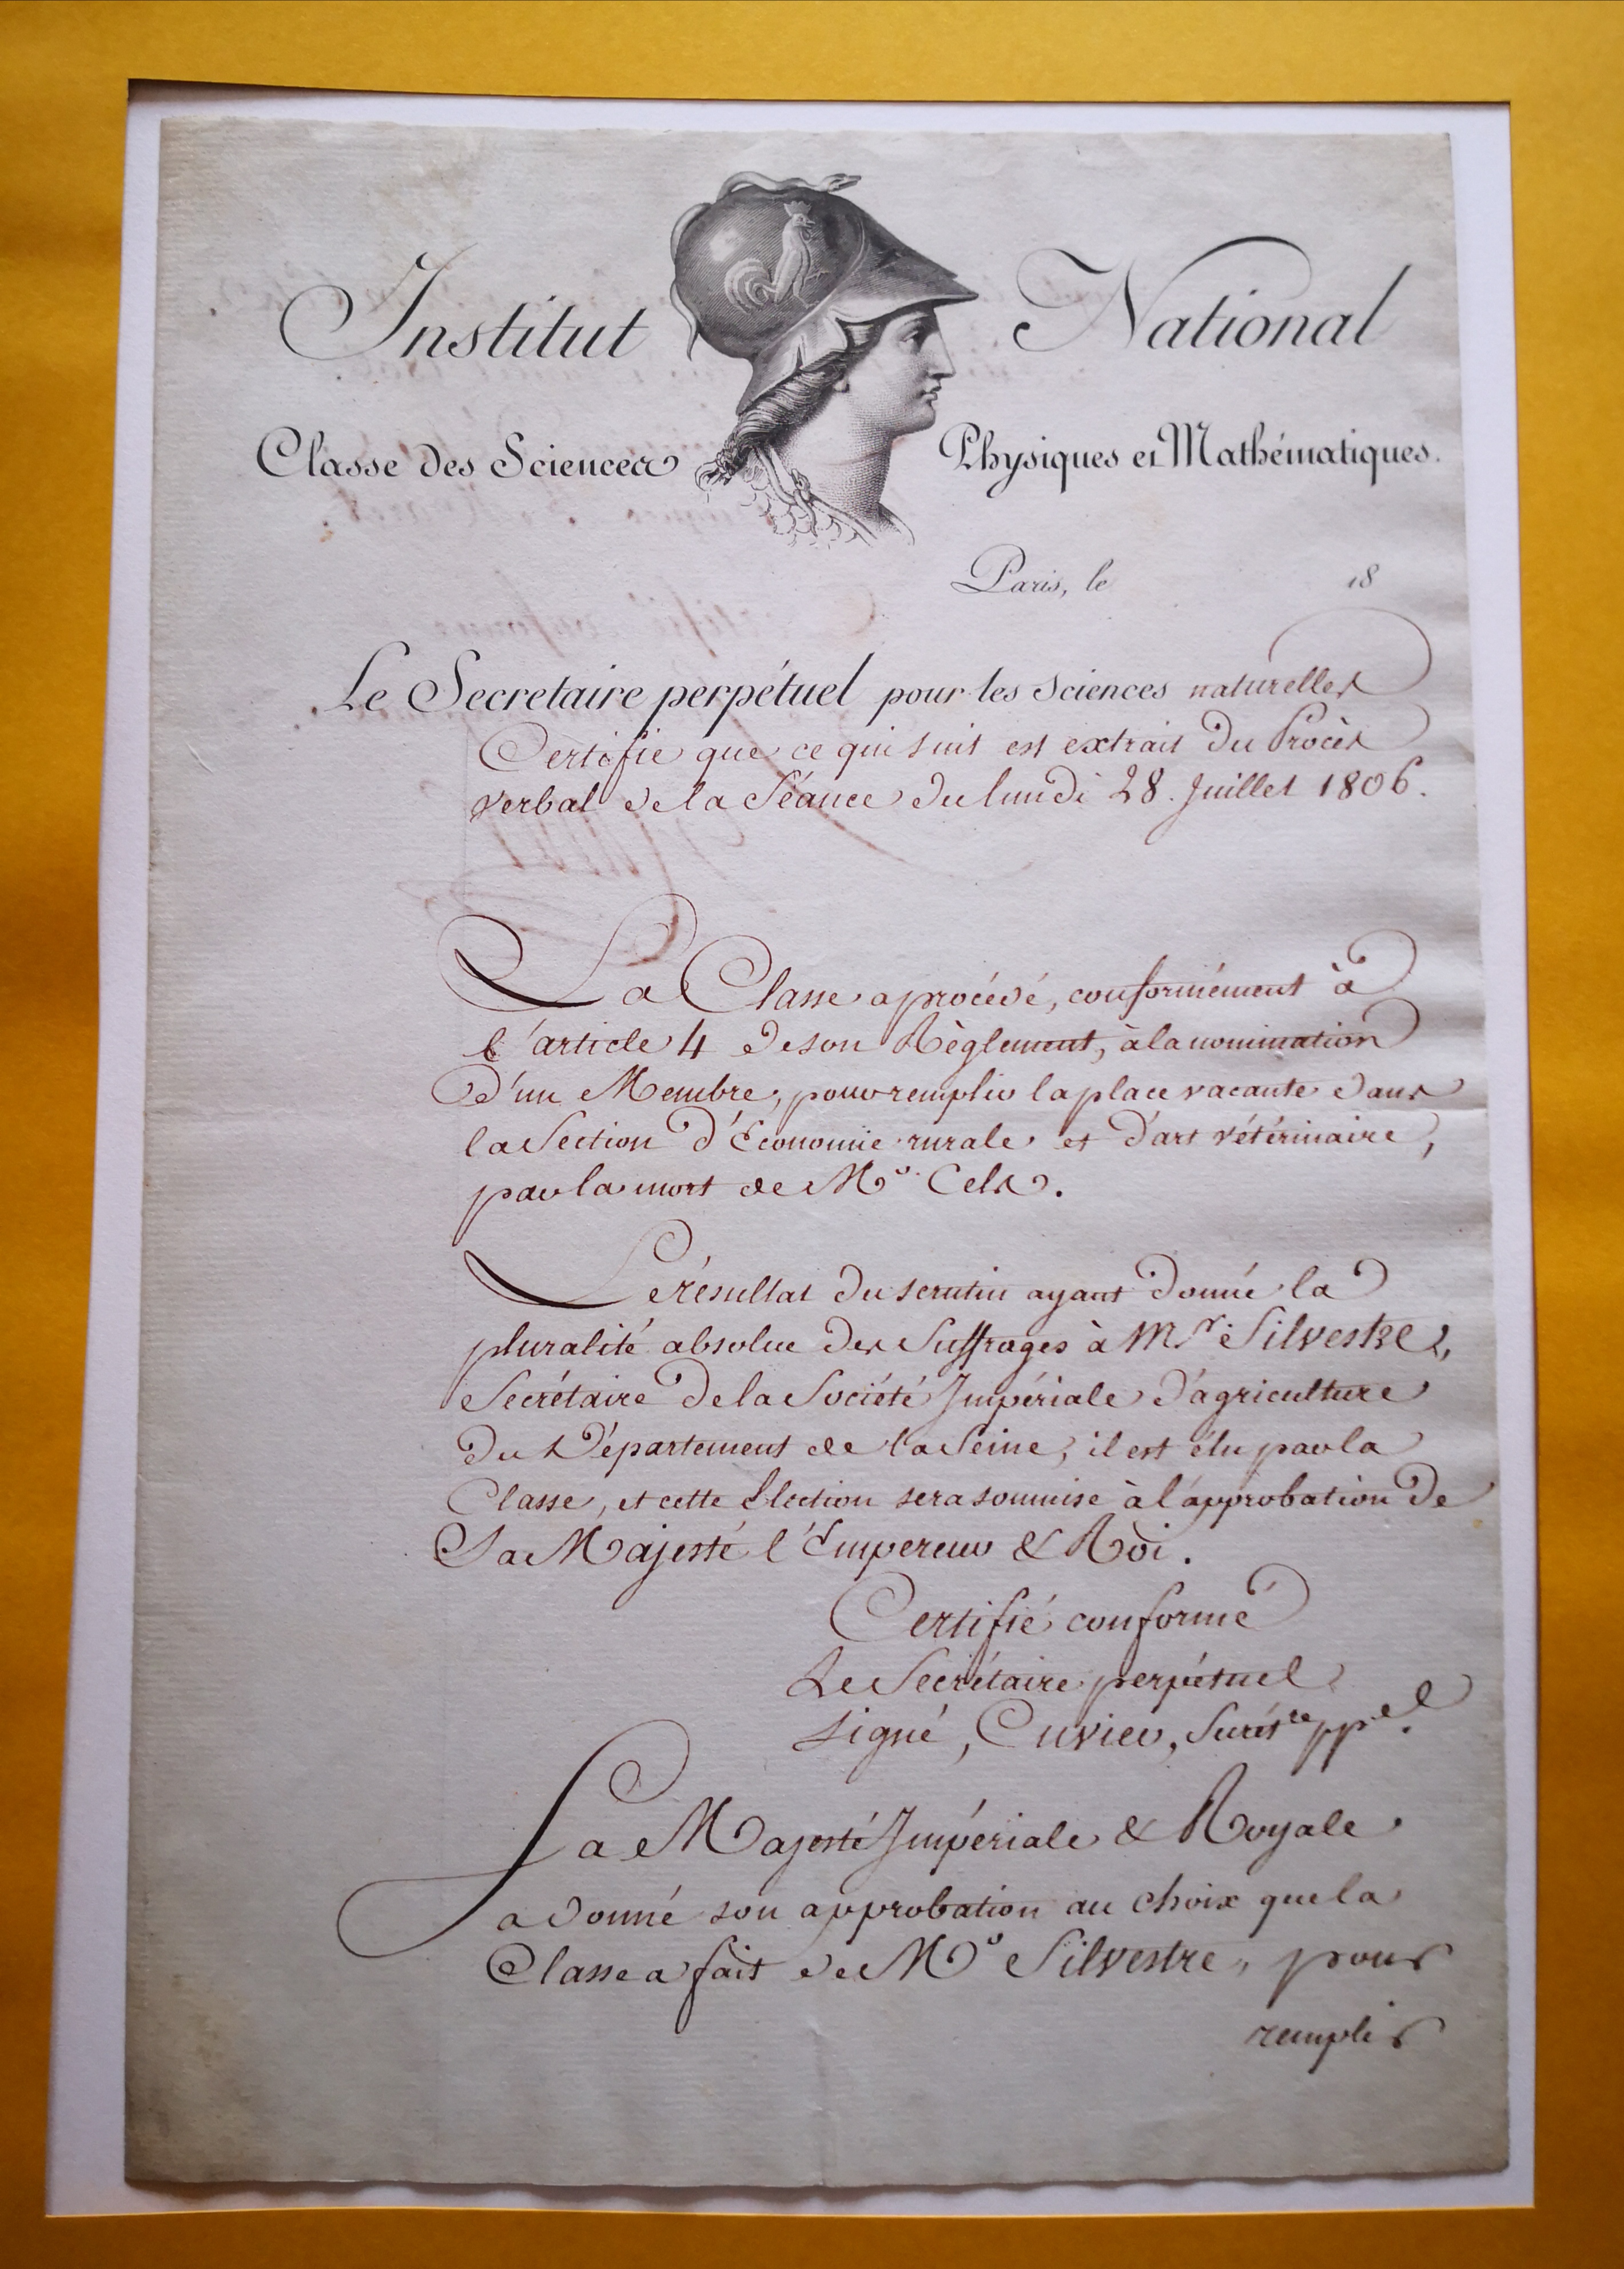 Institut National
Classe des Sciences Physiques et Mathématiques.
Paris, le 18
Le Secretaire perpétuel pour les Sciences naturelles
Certifie que ce qui suit est extrait du Procès
verbal de la Séance du lundi 28. Juillet 1806.
La Classe a procédé, conformément à
l'article 4 de son Règlement, à la nomination
d'un Membre, pour remplir la place vacante dans
la Section d'Économie rurale et d'art vétérinaire,
par la mort de Mr. Cels.
Le résultat du scrutin ayant donné la
pluralité absolue des Suffrages à Mr. Silvestre,
Secrétaire de la Société Impériale d'agriculture
du Département de la Seine, il est élu par la
Classe, et cette Élection sera soumise à l'approbation de
Sa Majesté l'Empereur & Roi.
Certifié conforme
Le Secrétaire perpétuel
Signé, Cuvier, Secrét.re pp.el
Sa Majesté Impériale & Royale
a donné son approbation au choix que la
Classe a fait de Mr Silvestre, pour
remplir